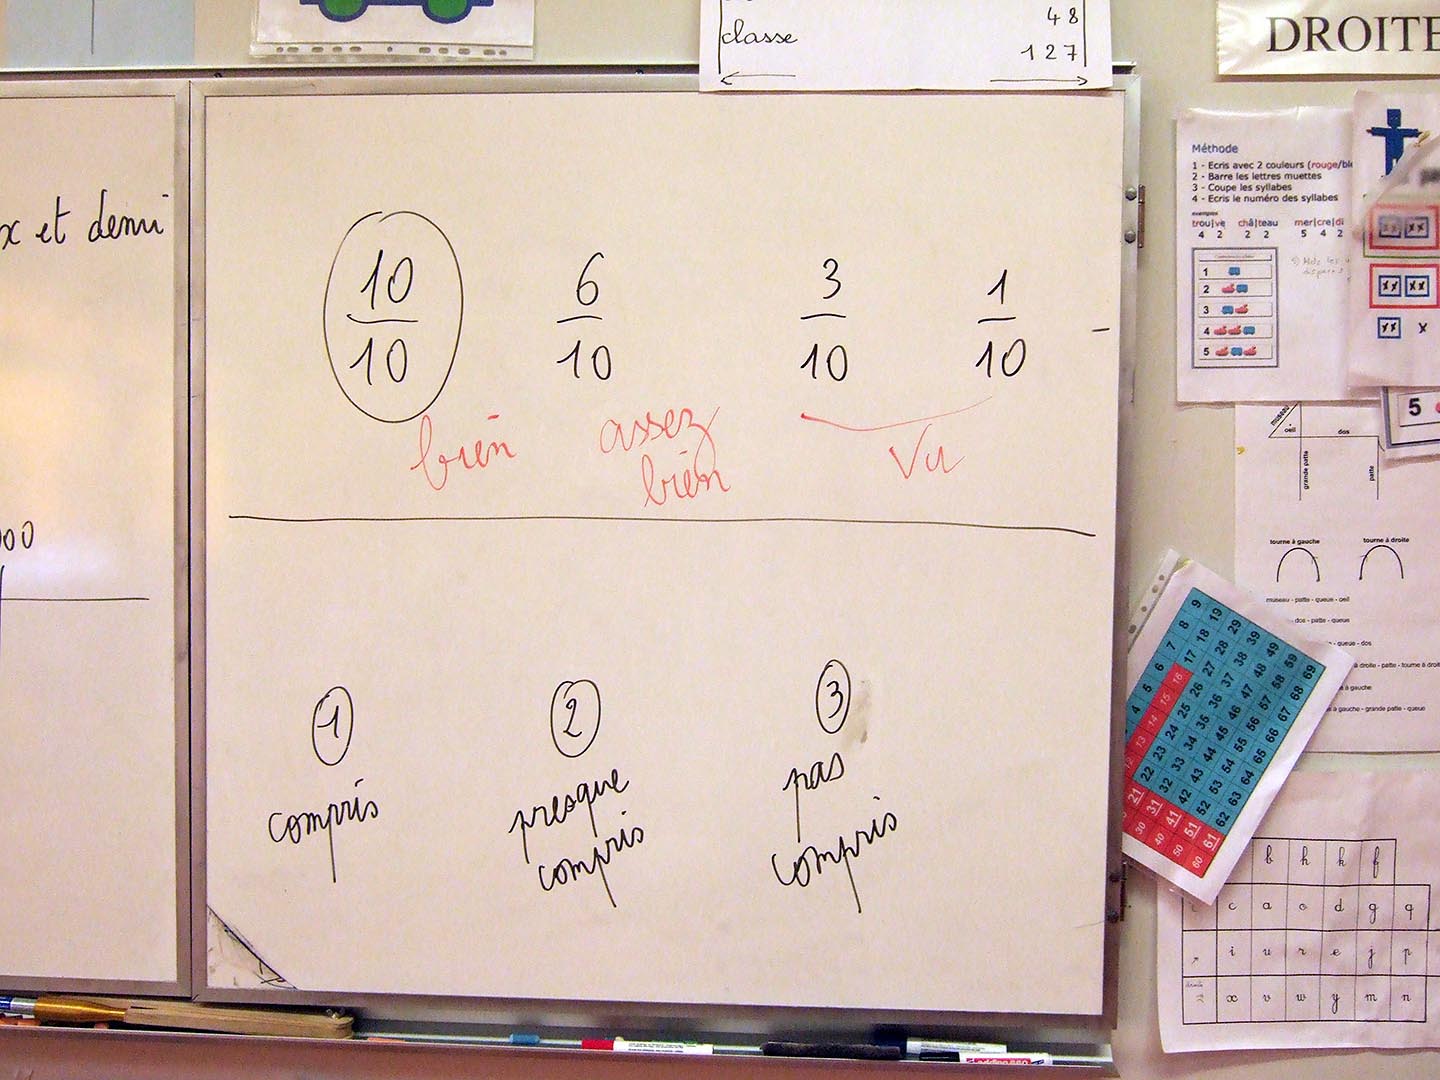 48
classe
127
DROITE
x et demi
00
10 6 3 1
10 10 10 10
bien assez Vu
bien
1 2 3
compris presque pas
compris compris
Méthode
1 - Ecris avec 2 couleurs (rouge/ble
2 - Barre les lettres muettes
3 - Coupe les syllabes
4 - Ecris le numéro des syllabes
exemples
trou|ve châ|teau mer|cre|di
4 2 2 2 5 4 2
1
2
3
4
5
5
museau
oeil
dos
grande patte
patte
tourne à gauche tourne à droite
museau - patte - queue - oeil
- dos - patte - queue
- queue - dos
à droite - patte - tourne à droit
à gauche
à gauche - grande patte - queue
4 5 6 7 8 9
12 13 14 15 16 17 18 19
21 22 23 24 25 26 27 28 29
30 31 32 33 34 35 36 37 38 39
40 41 42 43 44 45 46 47 48 49
50 51 52 53 54 55 56 57 58 59
60 61 62 63 64 65 66 67 68 69
b h k f
c a o d g q
i u r e j p
x v w y m n
adding 660